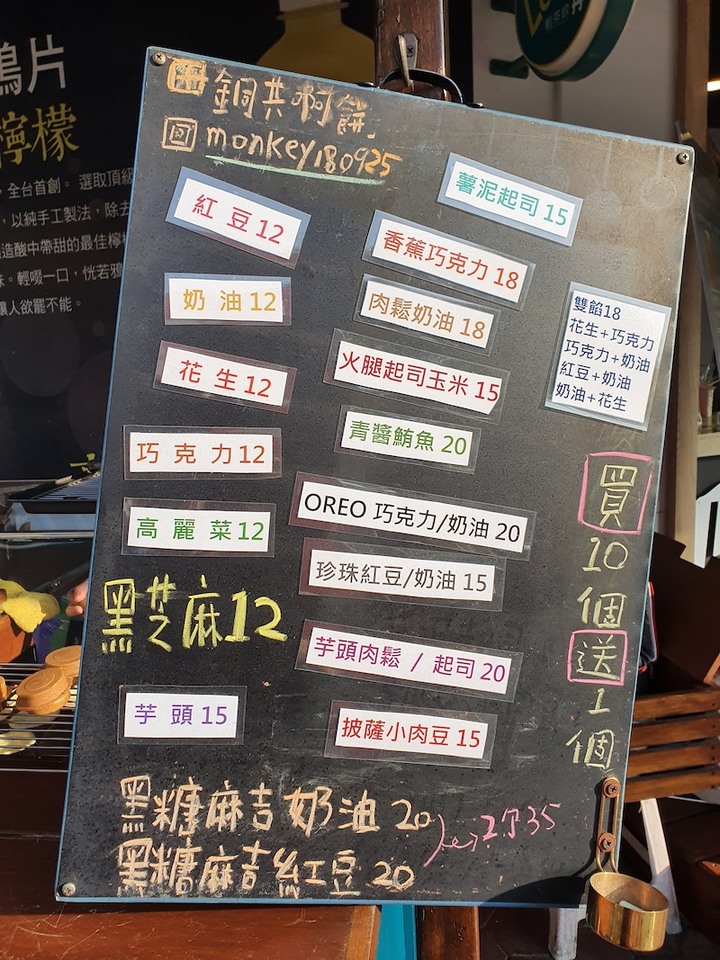 鴉片
檸檬
，全台首創。 選取頂級
，以純手工製法，除去
造酸中帶甜的最佳檸檬
味。輕啜一口，恍若鴉
讓人欲罷不能。
銅共啊餅
monkey180925
紅豆12
奶油12
花生12
巧克力12
高麗菜12
黑芝麻12
芋頭15
薯泥起司15
香蕉巧克力18
肉鬆奶油18
火腿起司玉米15
青醬鮪魚20
OREO 巧克力/奶油20
珍珠紅豆/奶油15
芋頭肉鬆 / 起司20
披薩小肉豆15
雙餡18
花生+巧克力
巧克力+奶油
紅豆+奶油
奶油+花生
買10個送1個
黑糖麻吉奶油20
黑糖麻吉紅豆20
35